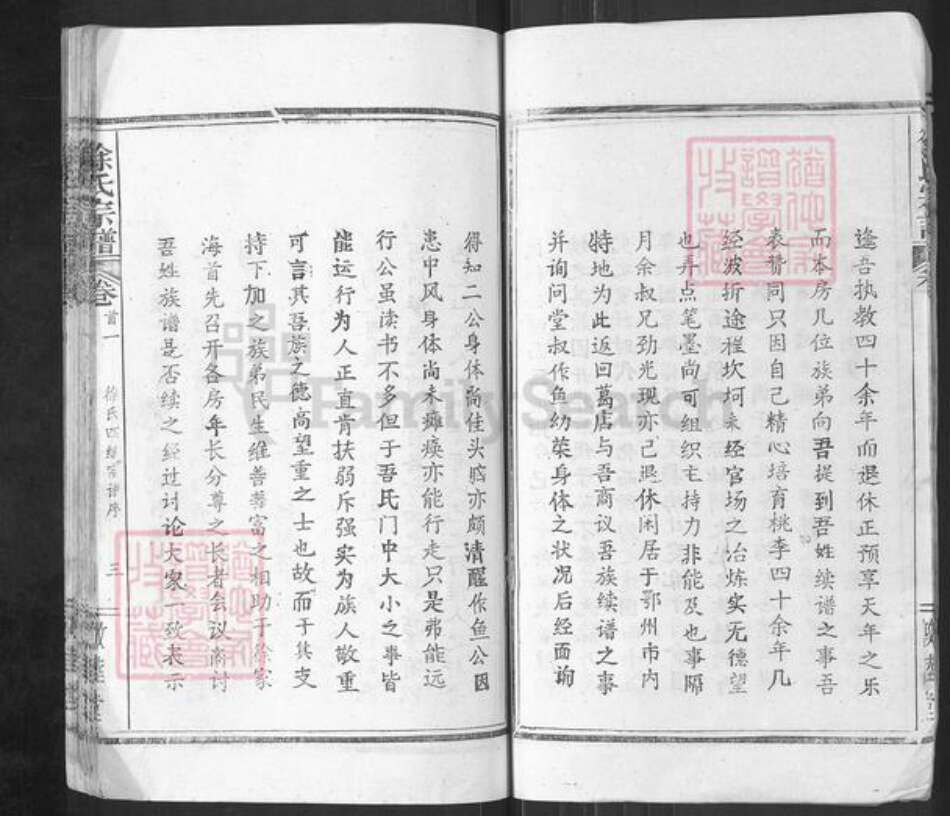 逢吾执教四十余年而退休正预享天年之乐
而本房几位族弟向吾提到吾姓续谱之事吾
表赞同只因自己精心培育桃李四十余年几
经波折途程坎坷未经官场之冶炼实无德望
也弄点笔墨尚可组织主持力非能及也事隔
月余叔兄劲光现亦已退休闲居于鄂州市内
特地为此返回葛店与吾商议吾族续谱之事
并询问堂叔作鱼幼荣身体之状况后经面询
得知二公身体尚佳头脑亦颇清醒作鱼公因
患中风身体尚未瘫痪亦能行走只是弗能远
行公虽读书不多但于吾氏门中大小之事皆
能运行为人正直肯扶弱斥强实为族人敬重
可言其吾族之德高望重之士也故而于其支
持下加之族弟民生维善善富之相助于徐家
海首先召开各房年长分尊之长者会议商讨
吾姓族谱是否续之经过讨论大家一致表示
徐氏宗谱
卷首一
徐氏四续宗谱序
三
Family Search